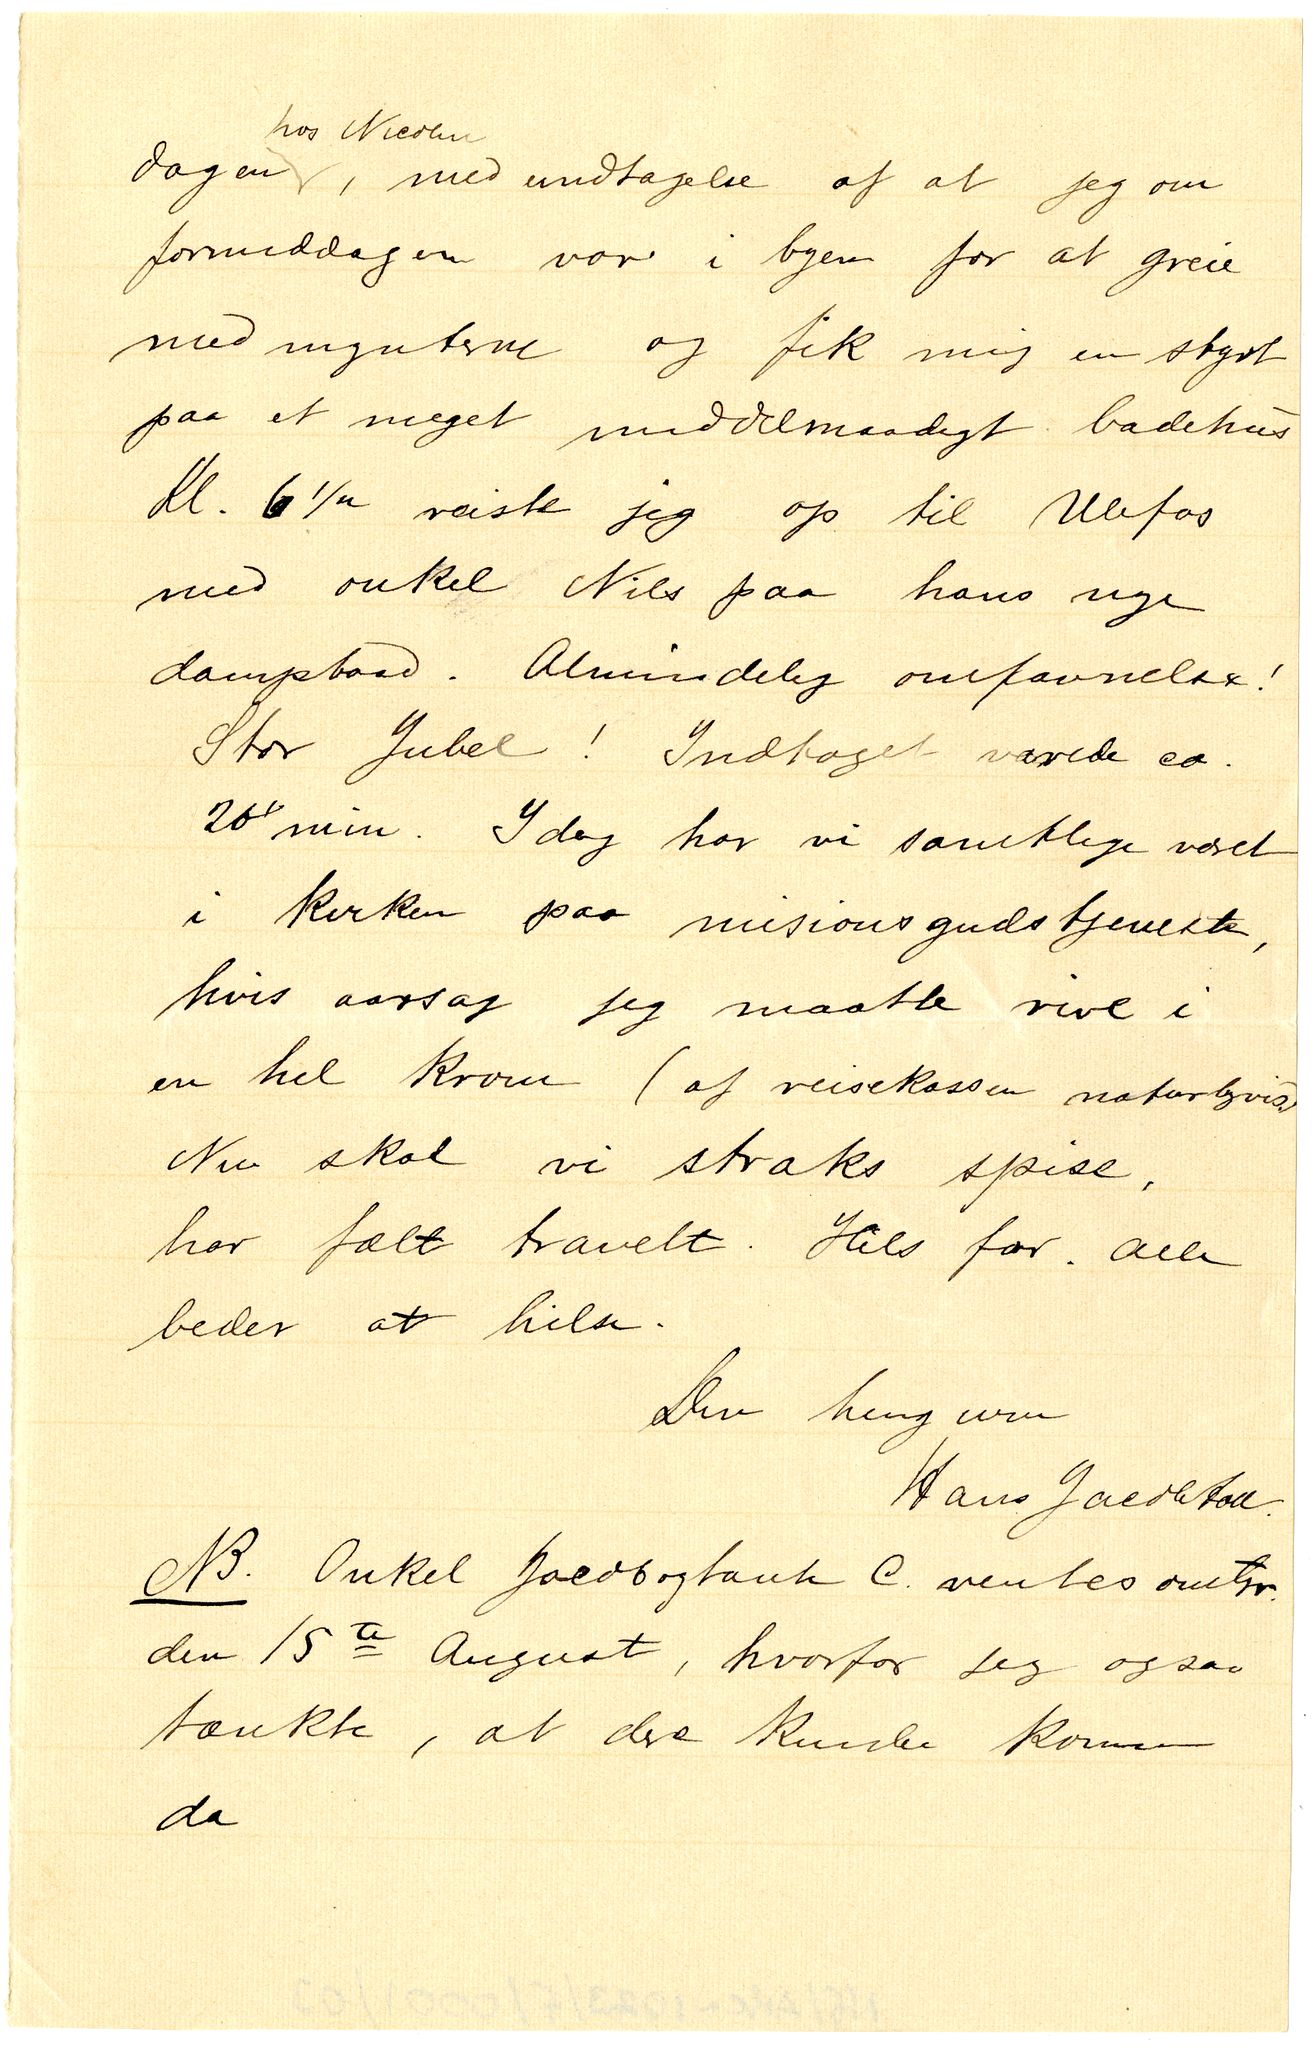 hos Nicolai
dagen, med undtagelse af at jeg om
formiddagen var i byen for at greie
med mynterne og fik mig en styrt
paa et meget middelmaadigt badehus
Kl. 6 1/2 reiste jeg op til Ulefos
med onkel Nils paa hans nye
dampbaad. Almindelig omfavnelse!
Stor Jubel! Indtoget varede ca.
20 min. Idag har vi samtlige været
i kirken paa misionsgudstjeneste,
hvis aarsag jeg maatte rive i
en hel krone (af reisekassen naturligvis)
Nu skal vi straks spise,
har fælt travelt. Hils far. Alle
beder at hilse.
Din heng. søn
Hans Jacob Aall.
NB. Onkel Jacob og tante C. ventes omtr.
den 15de August, hvorfor jeg ogsaa
tænkte, at dere kunde komme
da